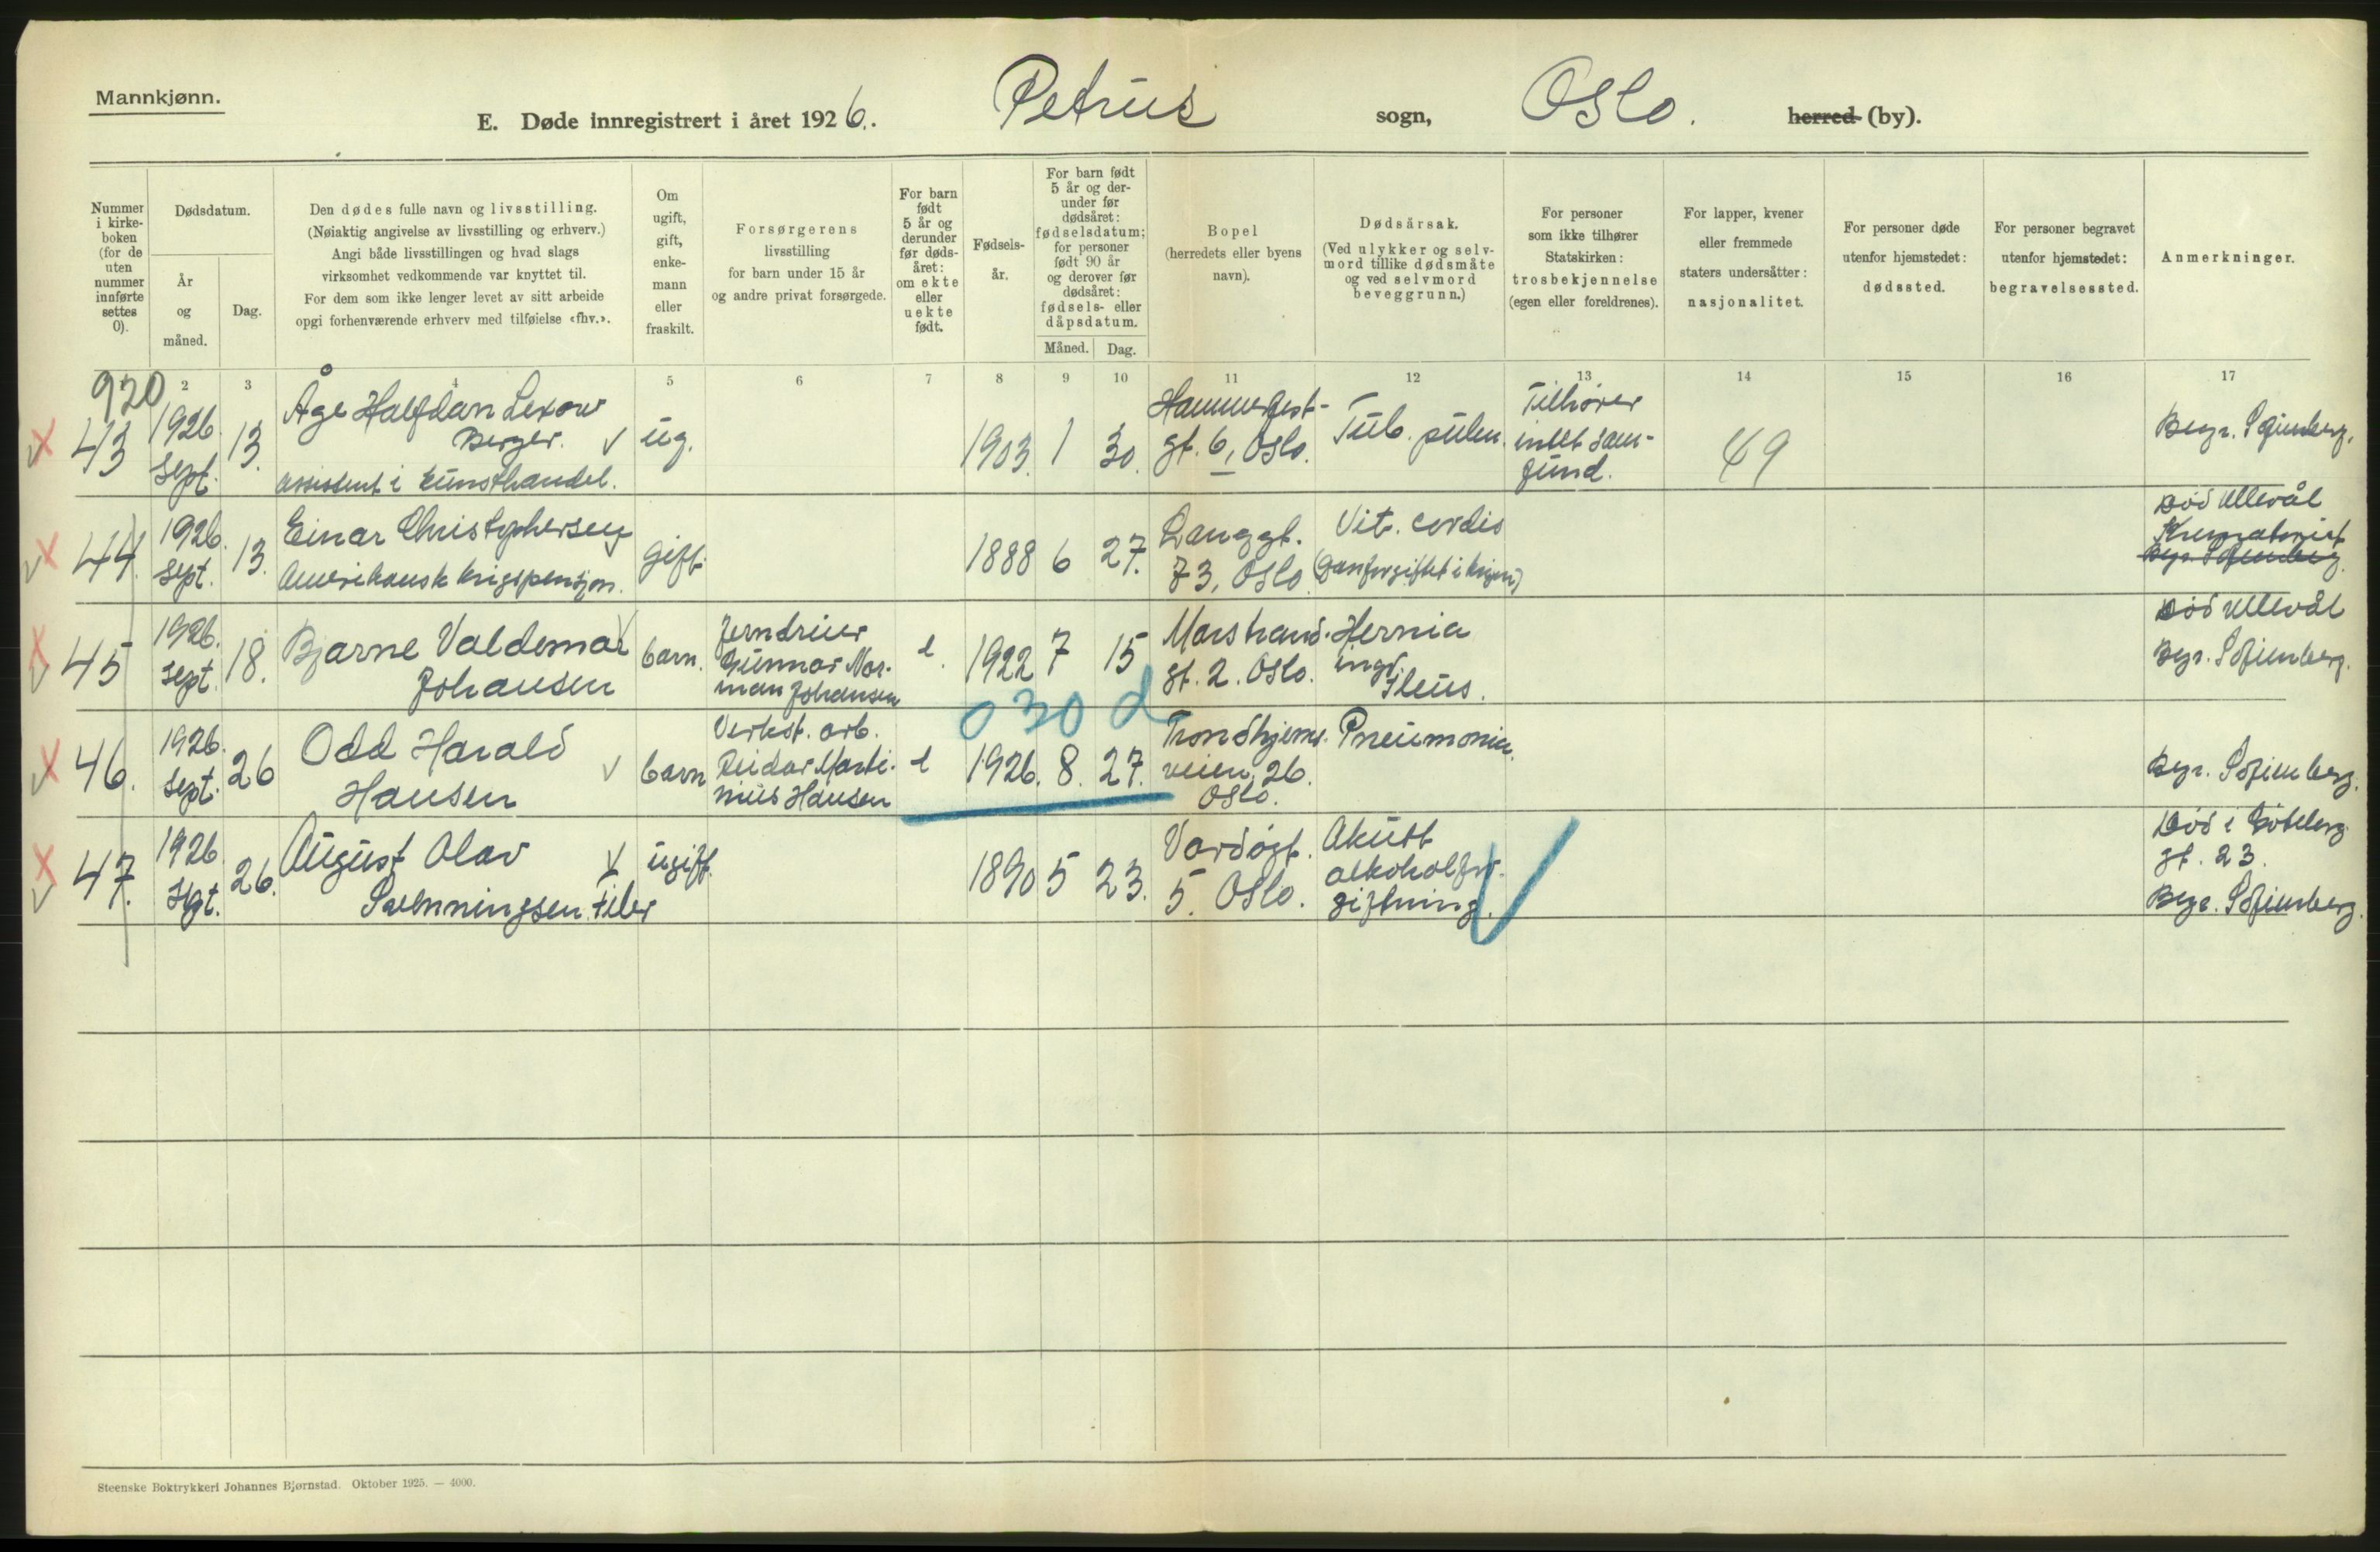 Mannkjønn.
E. Døde innregistrert i året 1926.
Petrus
sogn,
Oslo.
herred (by).
Nummer
i kirke-
boken
(for de
uten
nummer
innførte
settes
0).
Dødsdatum.
År
og
måned.
Dag.
Den dødes fulle navn og livsstilling.
(Nøiaktig angivelse av livsstilling og erhverv.)
Angi både livsstillingen og hvad slags
virksomhet vedkommende var knyttet til.
For dem som ikke lenger levet av sitt arbeide
opgi forhenværende erhverv med tilføielse «fhv.».
Om
ugift,
gift,
enke-
mann
eller
fraskilt.
Forsørgerens
livsstilling
for barn under 15 år
og andre privat forsørgede.
For barn
født
5 år og
derunder
før døds-
året:
om ekte
eller
uekte
født.
Fødsels-
år.
For barn født
5 år og der-
under før
dødsåret:
fødselsdatum;
for personer
født 90 år
og derover før
dødsåret:
fødsels- eller
dåpsdatum.
Måned.
Dag.
Bopel
(herredets eller byens
navn).
Dødsårsak.
(Ved ulykker og selv-
mord tillike dødsmåte
og ved selvmord
beveggrunn.)
For personer
som ikke tilhører
Statskirken:
trosbekjennelse
(egen eller foreldrenes).
For lapper, kvener
eller fremmede
staters undersåtter:
nasjonalitet.
For personer døde
utenfor hjemstedet:
dødssted.
For personer begravet
utenfor hjemstedet:
begravelsessted.
Anmerkninger.
920
2 3 4 5 6 7 8 9 10 11 12 13 14 15 16 17
43
1926
Sept.
13.
Åge Halfdan Lexow
Berger.
assistent i kunsthandel.
ug.
1903. 1 30.
Hammerfest-
gt. 6, Oslo.
Tub. pulm.
Tilhører
intet sam-
fund.
49
Begr. Sofienberg.
44.
1926.
Sept.
13.
Einar Christophersen
Amerikansk krigspensjon.
gift.
1888 6 27.
Langgt.
73, Oslo.
Vit. cordis
(Gasforgiftet i krigen)
Død Ullevål
Krematoriet
Begr. Sofienberg.
45
1926.
Sept.
18.
Bjarne Valdemar
Johansen
barn.
Jerndreier
Gunnar Nor-
man Johansen
e.
1922 7 15
Marstrand-
gt. 2. Oslo.
Hernia
ingv.
Ileus.
Død Ullevål
Begr. Sofienberg.
0 30 d
46.
1926.
Sept.
26
Odd Harald
Hansen
barn
Verkst. arb.
Reidar Marti-
nius Hansen
e
1926. 8. 27.
Trondhjems-
veien 26.
Oslo.
Pneumonia.
Begr. Sofienberg.
47.
1926
Sept.
26.
August Olav
Svenningsen. Filer
ugift.
1890 5 23.
Vardøgt.
5. Oslo.
Akutt
alkoholfor-
giftning.
Død i Gøteborg
gt. 23.
Begr. Sofienberg.
Steenske Boktrykkeri Johannes Bjørnstad. Oktober 1925. — 4000.